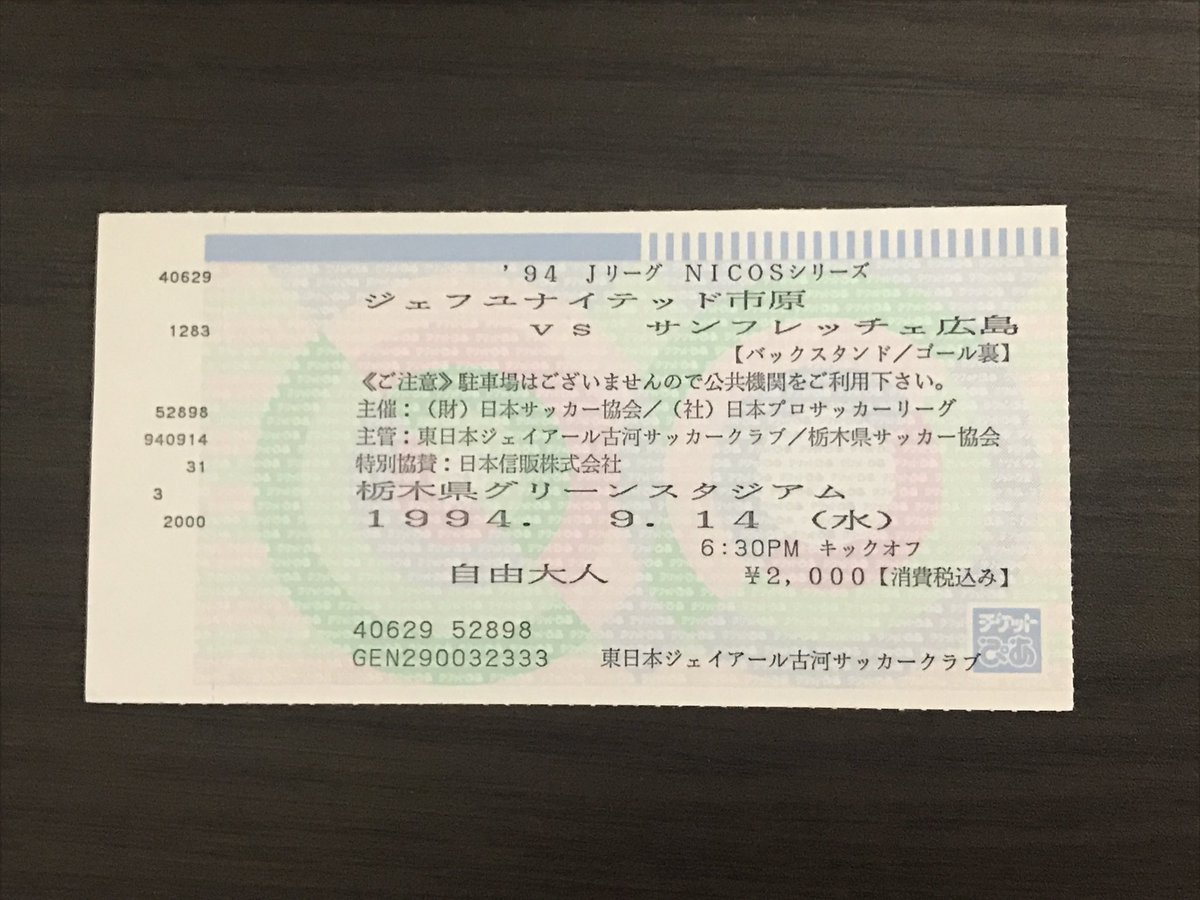 40629
1283
52898
940914
31
3
2000
’94 Jリーグ NICOSシリーズ
ジェフユナイテッド市原
vs サンフレッチェ広島
【バックスタンド／ゴール裏】
《ご注意》駐車場はございませんので公共機関をご利用下さい。
主催：（財）日本サッカー協会／（社）日本プロサッカーリーグ
主管：東日本ジェイアール古河サッカークラブ／栃木県サッカー協会
特別協賛：日本信販株式会社
栃木県グリーンスタジアム
1994. 9.14（水）
6:30PM キックオフ
自由大人 ¥2,000【消費税込み】
40629 52898
GEN290032333 東日本ジェイアール古河サッカークラブ
チケット
ぴあ